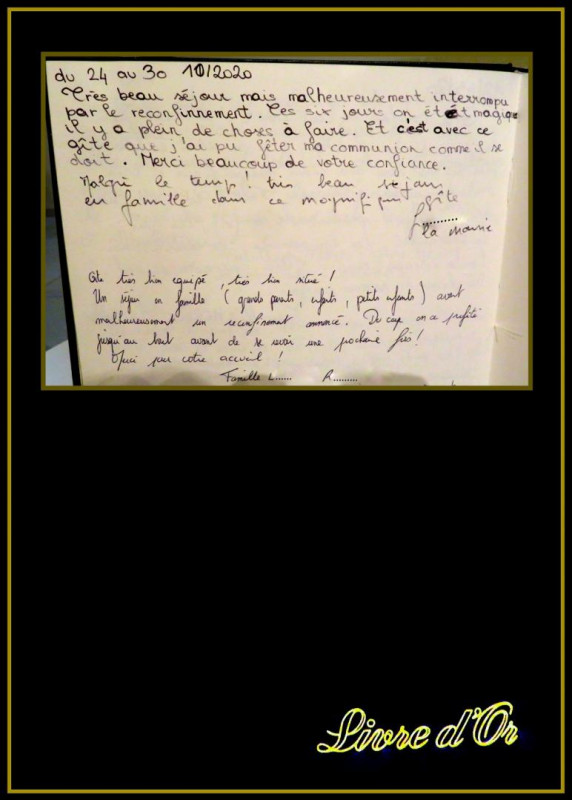 du 24 au 30 10/2020
Très beau séjour mais malheureusement interrompu
par le reconfinnement. Ces six jours on étét magique
il y a plein de choses à faire. Et c'est avec ce
gîte que j'ai pu fêter ma communion comme il se
doit. Merci beaucoup de votre confiance.
Malgré le temps! très beau séjour
en famille dans ce magnifique gîte
la mamie
Gîte très bien equipé, très bien situé!
Un séjour en famille (grands parents, enfants, petits enfants) avant
malheureusement un reconfinement annoncé. De ce on a profité
jusqu'au bout avant de se revoir une prochaine fois!
Merci pour votre accueil!
Famille L...... R.........
Livre d'Or